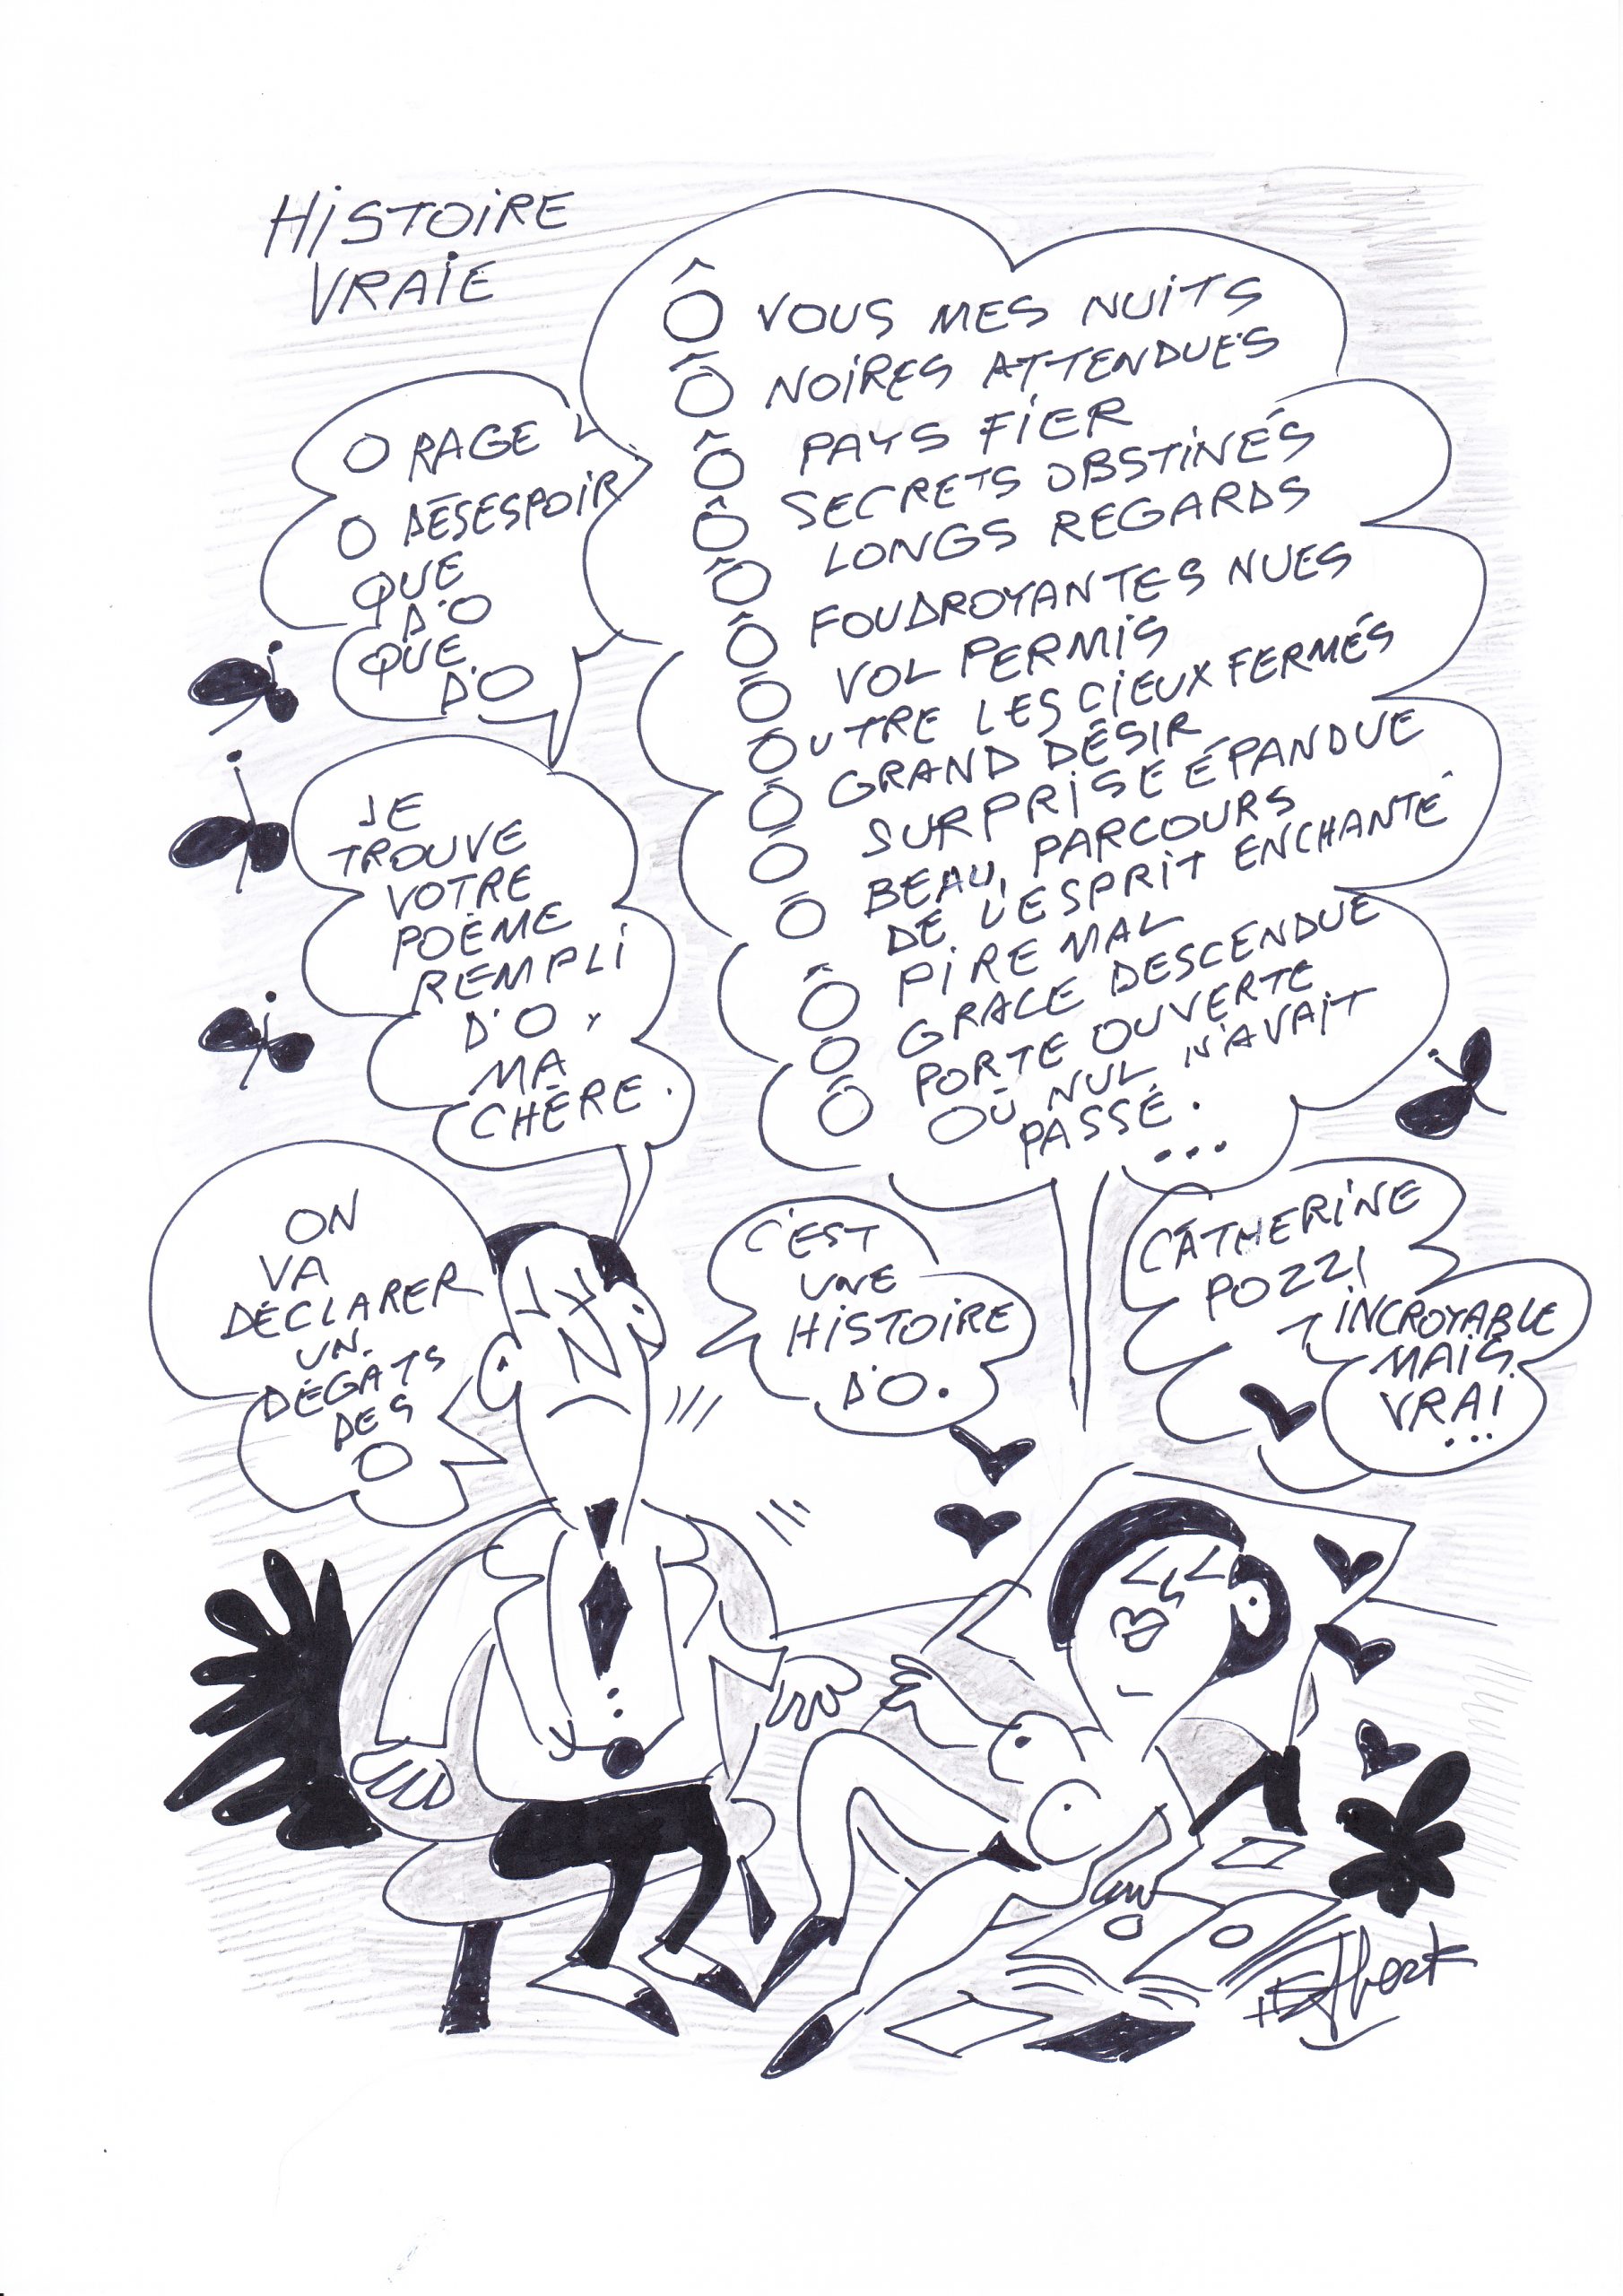 HISTOIRE
VRAIE
Ô VOUS MES NUITS
Ô NOIRES ATTENDUES
Ô PAYS FIER
Ô SECRETS OBSTINÉS
Ô LONGS REGARDS
Ô FOUDROYANTES NUES
Ô VOL PERMIS
OUTRE LES CIEUX FERMÉS
Ô GRAND DÉSIR
Ô SURPRISE ÉPANDUE
Ô BEAU, PARCOURS
DE L'ESPRIT ENCHANTÉ
Ô PIRE MAL
Ô GRACE DESCENDUE
Ô PORTE OUVERTE
OÙ NUL N'AVAIT
PASSÉ.
...
O RAGE
O DÉSESPOIR
QUE
D'O
QUE
D'O
JE
TROUVE
VOTRE
POÈME
REMPLI
D'O,
MA
CHÈRE.
ON
VA
DÉCLARER
UN
DÉGATS
DES
O
C'EST
UNE
HISTOIRE
D'O.
CATHERINE
POZZI
INCROYABLE
MAIS
VRAI
...